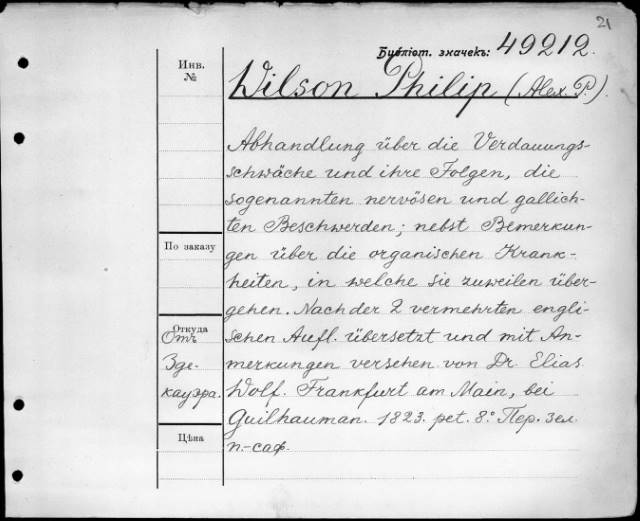 21
Библіот. значекъ: 49212.
Инв.
№
Wilson Philip (Alex. P.).
Abhandlung über die Verdauungs-
schwäche und ihre Folgen, die
sogenannten nervösen und gallich-
ten Beschwerden; nebst Bemerkun-
По заказу
gen über die organischen Krank-
heiten, in welche sie zuweilen über-
gehen. Nach der 2 vermehrten engli-
Откуда
Отъ
schen Aufl. übersetzt und mit An-
Зде-
merkungen versehen von Dr. Elias
кауэра.
Wolf. Frankfurt am Main, bei
Guilhauman. 1823. pet. 8.° Пер. зел.
Цѣна
п.-саф.